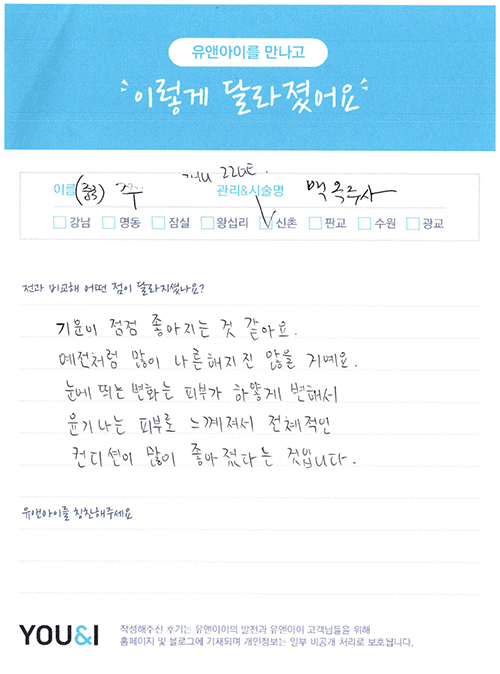 유앤아이를 만나고
이렇게 달라졌어요
이름 (중) 주 관리&시술명 백옥주사
강남 명동 잠실 왕십리 신촌 판교 수원 광교
전과 비교해 어떤 점이 달라지셨나요?
기분이 점점 좋아지는 것 같아요.
예전처럼 많이 나른해지진 않을 거예요.
눈에 띄는 변화는 피부가 하얗게 변해서
윤기나는 피부로 느껴져서 전체적인
컨디션이 많이 좋아졌다는 것입니다.
유앤아이를 칭찬해주세요
YOU&I
작성해주신 후기는 유앤아이의 발전과 유앤아이 고객님들을 위해
홈페이지 및 블로그에 기재되며 개인정보는 일부 비공개 처리로 보호됩니다.